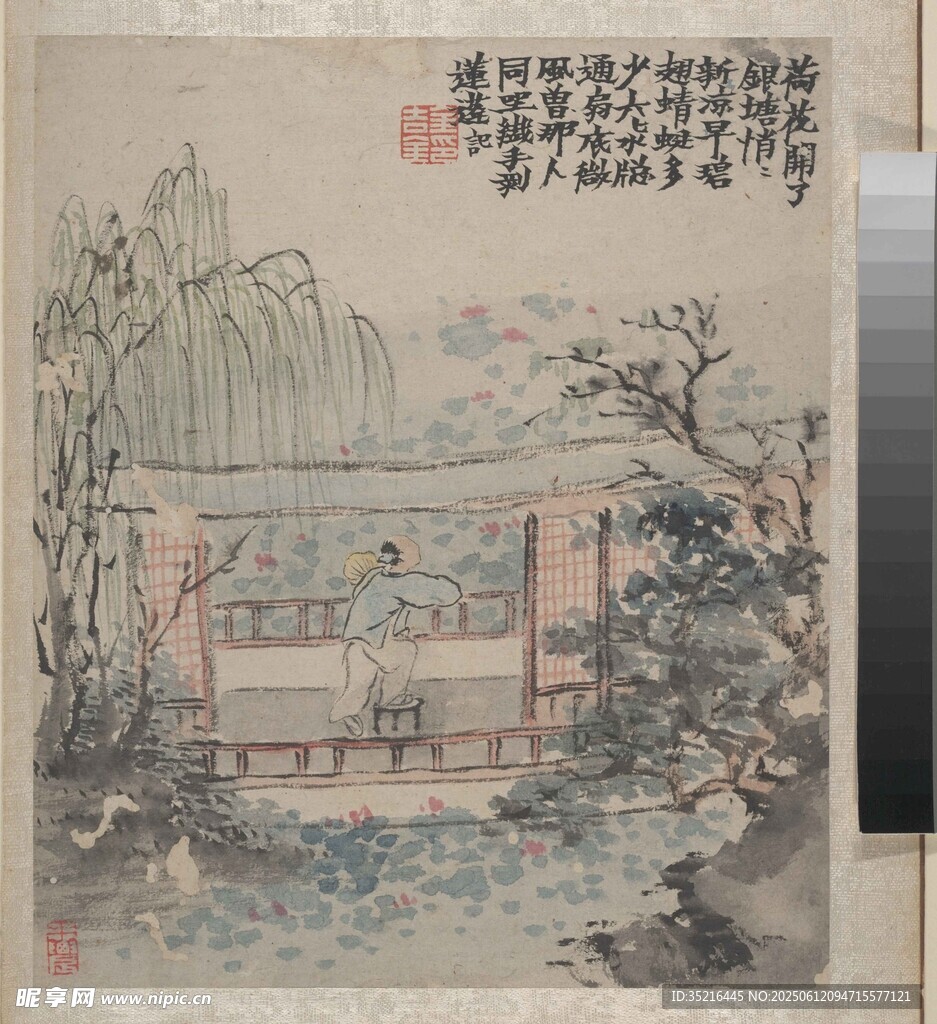 荷花開了
銀塘悄〻
新涼早碧
翅蜻蜓多
少六〻水窓
通扇底微
風曾那人
同坐纖手剝
蓮蓬記
昵享网 www.nipic.cn
ID:35216445 NO:20250612094715577121